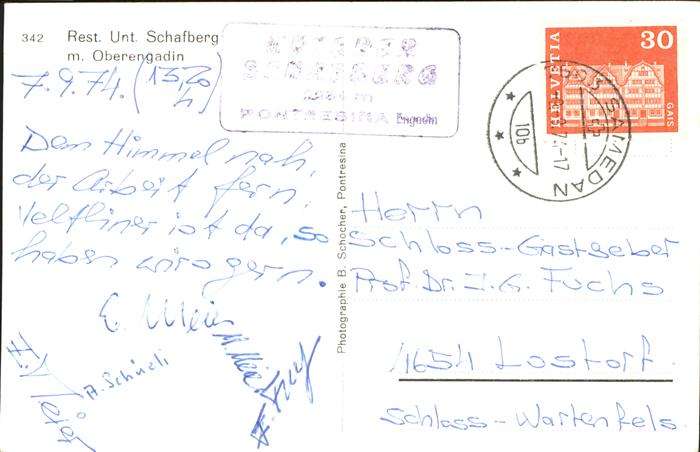 342 Rest. Unt. Schafberg
m. Oberengadin
7.9.74. (13,20 h)
Dem Himmel nah,
der Arbeit fern.
Veltliner ist da, so
haben wirs gern.
E. Meier
A. Schüeli
Photographie B. Schocher, Pontresina
UNTERER
SCHAFBERG
PONTRESINA Engadin
HELVETIA
30
GAIS
SAMEDAN
10b
Herrn
Schloss-Gastgeber
Prof. Dr. J. G. Fuchs
4654 Lostorf
Schloss-Wartenfels.